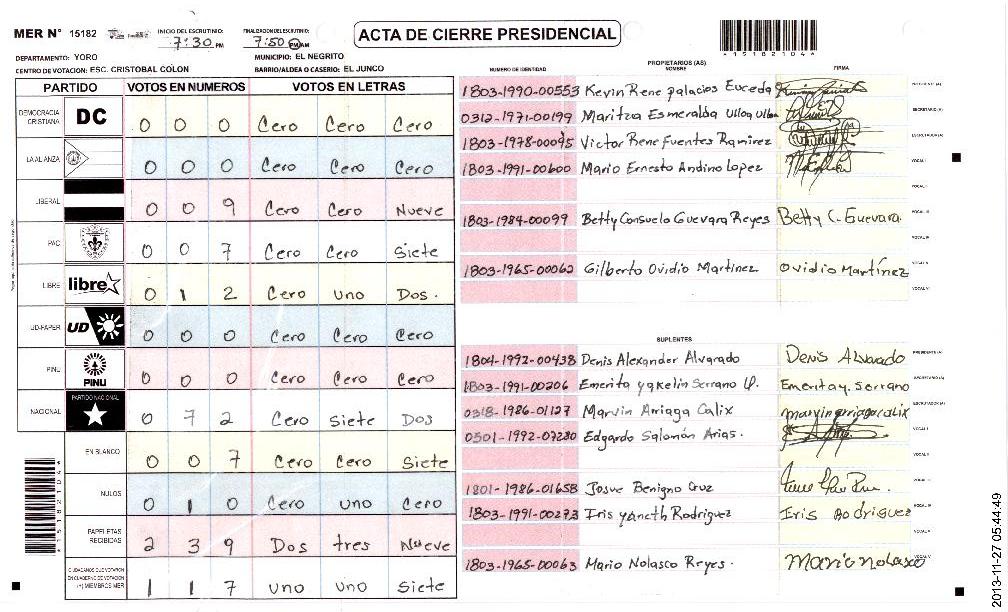 MER N° 15182 INICIO DEL ESCRUTINIO: 7:30 PM FINALIZACION DEL ESCRUTINIO: 7:50 PM AM
ACTA DE CIERRE PRESIDENCIAL
*15182104*
DEPARTAMENTO: YORO MUNICIPIO: EL NEGRITO
CENTRO DE VOTACION: ESC. CRISTOBAL COLON BARRIO/ALDEA O CASERIO: EL JUNCO
PARTIDO VOTOS EN NUMEROS VOTOS EN LETRAS
DEMOCRACIA CRISTIANA DC 0 0 0 Cero Cero Cero
LA ALIANZA 0 0 0 Cero Cero Cero
LIBERAL 0 0 9 Cero Cero Nueve
PAC 0 0 7 Cero Cero Siete
LIBRE libre 0 1 2 Cero uno Dos.
UD-FAPER UD 0 0 0 Cero Cero Cero
PINU PINU 0 0 0 Cero Cero Cero
NACIONAL PARTIDO NACIONAL 0 7 2 Cero Siete Dos
EN BLANCO 0 0 7 Cero Cero Siete
NULOS 0 1 0 Cero uno Cero
PAPELETAS RECIBIDAS 2 3 9 Dos tres Nueve
CIUDADANOS QUE VOTARON EN CUADERNO DE VOTACION (+) MIEMBROS MER 1 1 7 uno uno Siete
*15182104*
PROPIETARIOS (AS)
NUMERO DE IDENTIDAD NOMBRE FIRMA
1803-1990-00553 Kevin Rene palacios Euceda PRESIDENTE (A)
0312-1971-00199 Maritza Esmeralda Ulloa Ulloa SECRETARIO (A)
1803-1978-00095 Victor Rene Fuentes Ramirez ESCRUTADOR (A)
1803-1991-00600 Mario Ernesto Andino Lopez VOCAL I
VOCAL II
1803-1984-00099 Betty Consuelo Guevara Reyes Betty C. Guevara. VOCAL III
VOCAL IV
1803-1965-00062 Gilberto Ovidio Martinez Ovidio Martínez VOCAL V
VOCAL VI
SUPLENTES
1804-1992-00438 Denis Alexander Alvarado Denis Alvarado PRESIDENTE (A)
1803-1991-00206 Emerita yakelin Serrano Emerita y. Serrano SECRETARIO (A)
0318-1986-01127 Marvin Arriaga Calix marvin arriaga calix ESCRUTADOR (A)
0501-1992-07230 Edgardo Salomón Arias. VOCAL I
VOCAL II
1801-1986-01658 Josue Benigno Cruz VOCAL III
1803-1991-00273 Iris yaneth Rodriguez Iris Rodriguez VOCAL IV
1803-1965-00063 Mario Nolasco Reyes. Mario nolasco
2013-11-27 05:44:49